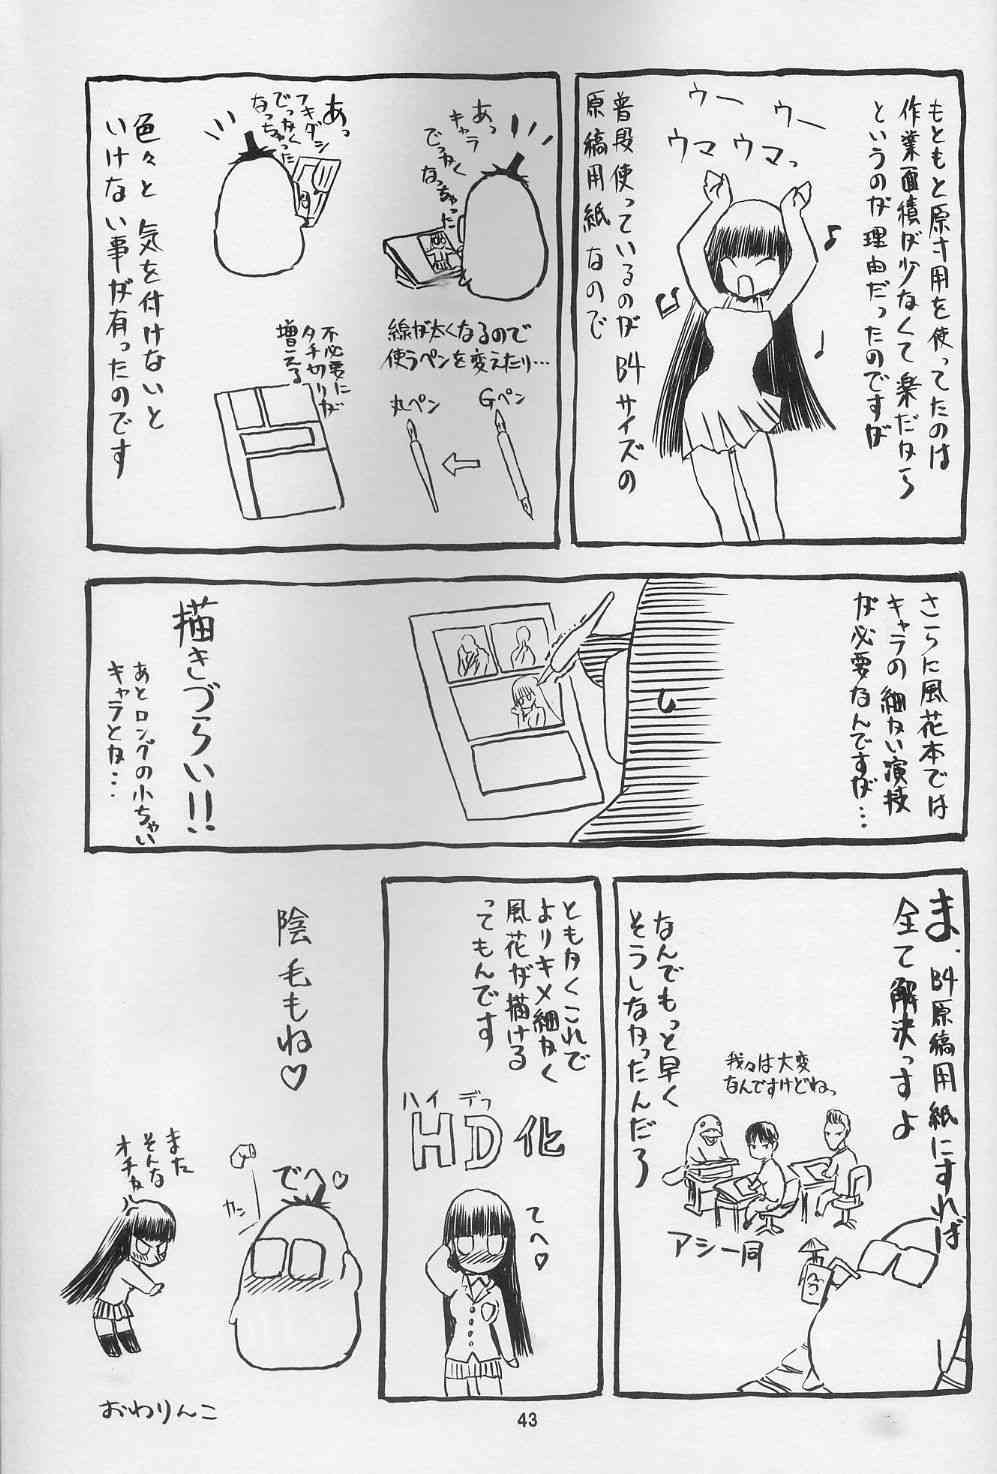 もともと原寸用を使ってたのは
作業面積が少なくて楽だから
というのが理由だったのですが
ウー
ウー
ウマ ウマっ
普段使っているのがB4サイズの
原稿用紙なので
あっ
キャラ
でっかく
なっちゃった
あっ
フキダシ
でっかく
なっちゃった
線が太くなるので
使うペンを変えたり…
Gペン
丸ペン
不必要に
タチ切りが
増える
色々と気を付けないと
いけない事が有ったのです
さらに風花本では
キャラの細かい演技
が必要なんですが…
描きづらい!!
あとロングの小ちゃい
キャラとか…
ま、B4原稿用紙にすれば
全て解決っすよ
なんでもっと早く
そうしなかったんだろ
我々は大変
なんですけどねっ
アシ一同
ともかくこれで
よりキメ細かく
風花が描ける
ってもんです
ハイ デフ
HD化
てへ♡
陰毛もね♡
でへ♡
カン
また
そんな
オチか
おわりんこ
43